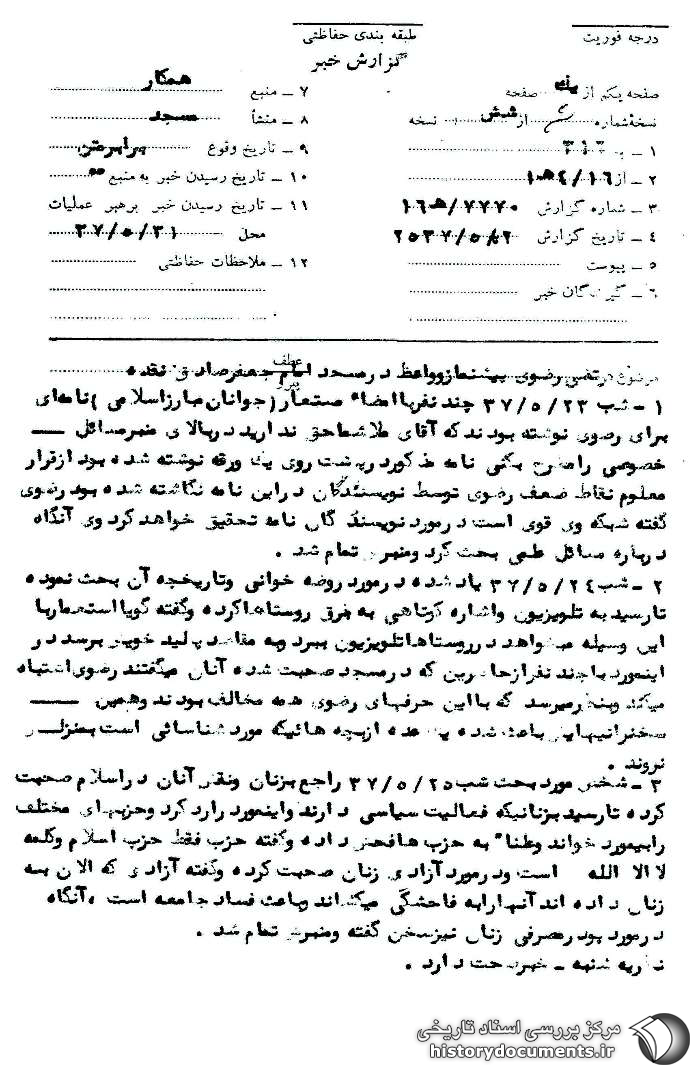 درجه فوریت
طبقه بندی حفاظتی
گزارش خبر
صفحه یکم از یک صفحه
نسخه شماره از شش نسخه
۱ ـ به ۳۱۲
۲ ـ از ۴/۱۶ ه‍ ۱
۳ ـ شماره گزارش ۷۷۷۰/ ه‍ ۱۶
۴ ـ تاریخ گزارش ۲۵۳۷/۵/
۵ ـ پیوست
۶ ـ گیرندگان خبر
۷ ـ منبع همکار
۸ ـ منشأ مسجد
۹ ـ تاریخ وقوع برابر متن
۱۰ ـ تاریخ رسیدن خبر به منبع ""
۱۱ ـ تاریخ رسیدن خبر برهبر عملیات
محل ۳۷/۵/۳۱
۱۲ ـ ملاحظات حفاظتی
عطف
موضوع مرتضی رضوی پیشنماز و واعظ در مسجد امام جعفر صادق نقده
۱ – شب ۳۷/۵/۲۳ چند نفر با امضاء مستعار (جوانان مبارز اسلامی) نامه‌ای
برای رضوی نوشته بودند که آقای ملا شما حق ندارید در بالای منبر مسائل
خصوصی را مطرح بکنی نامه مذکور در پشت روی یک ورقه نوشته شده بود از قرار
معلوم نقاط ضعف رضوی توسط نویسندگان در این نامه نگاشته شده بود رضوی
گفته شبکه وی قوی است در مورد نویسندگان نامه تحقیق خواهد کرد وی آنگاه
درباره مسائل علمی بحث کرد و منبرش تمام شد .
۲ – شب ۳۷/۵/۲۴ یاد شده در مورد روضه خوانی و تاریخچه آن بحث نموده
تا رسید به تلویزیون و اشاره کوتاهی به برق روستاها کرده و گفته گویا استعمار با
این وسیله میخواهد در روستاها تلویزیون ببرد و به مقاصد پلید خویش برسد در
اینمورد با چند نفر از حاضرین که در مسجد صحبت شده آنان میگفتند رضوی اشتباه
میکند و بنظر میرسد که با این حرفهای رضوی همه مخالف بودند و همین
سخنرانیهایش باعث شده یک عده از بچه هائیکه مورد شناسائی است بمنزلش
نروند .
۳ – شخص مورد بحث شب ۳۷/۵/۲۵ راجع بزنان و نقش آنان در اسلام صحبت
کرده تا رسید بزنانیکه فعالیت سیاسی دارند و اینمورد را رد کرد و حزبهای مختلف
را بیمورد خواند و علنا" به حزب ها فحش داده و گفته حزب فقط حزب اسلام و کلمه
لا اله الا الله است و در مورد آزادی زنان صحبت کرده و گفته آزادی که الان به
زنان داده اند آنها را به فاحشگی میکشاند و باعث فساد جامعه است ، آنگاه
در مورد پر مصرفی زنان نیز سخن گفته و منبرش تمام شد .
نظریه شنبه – خبر صحت دارد .
مرکز بررسی اسناد تاریخی
historydocuments.ir